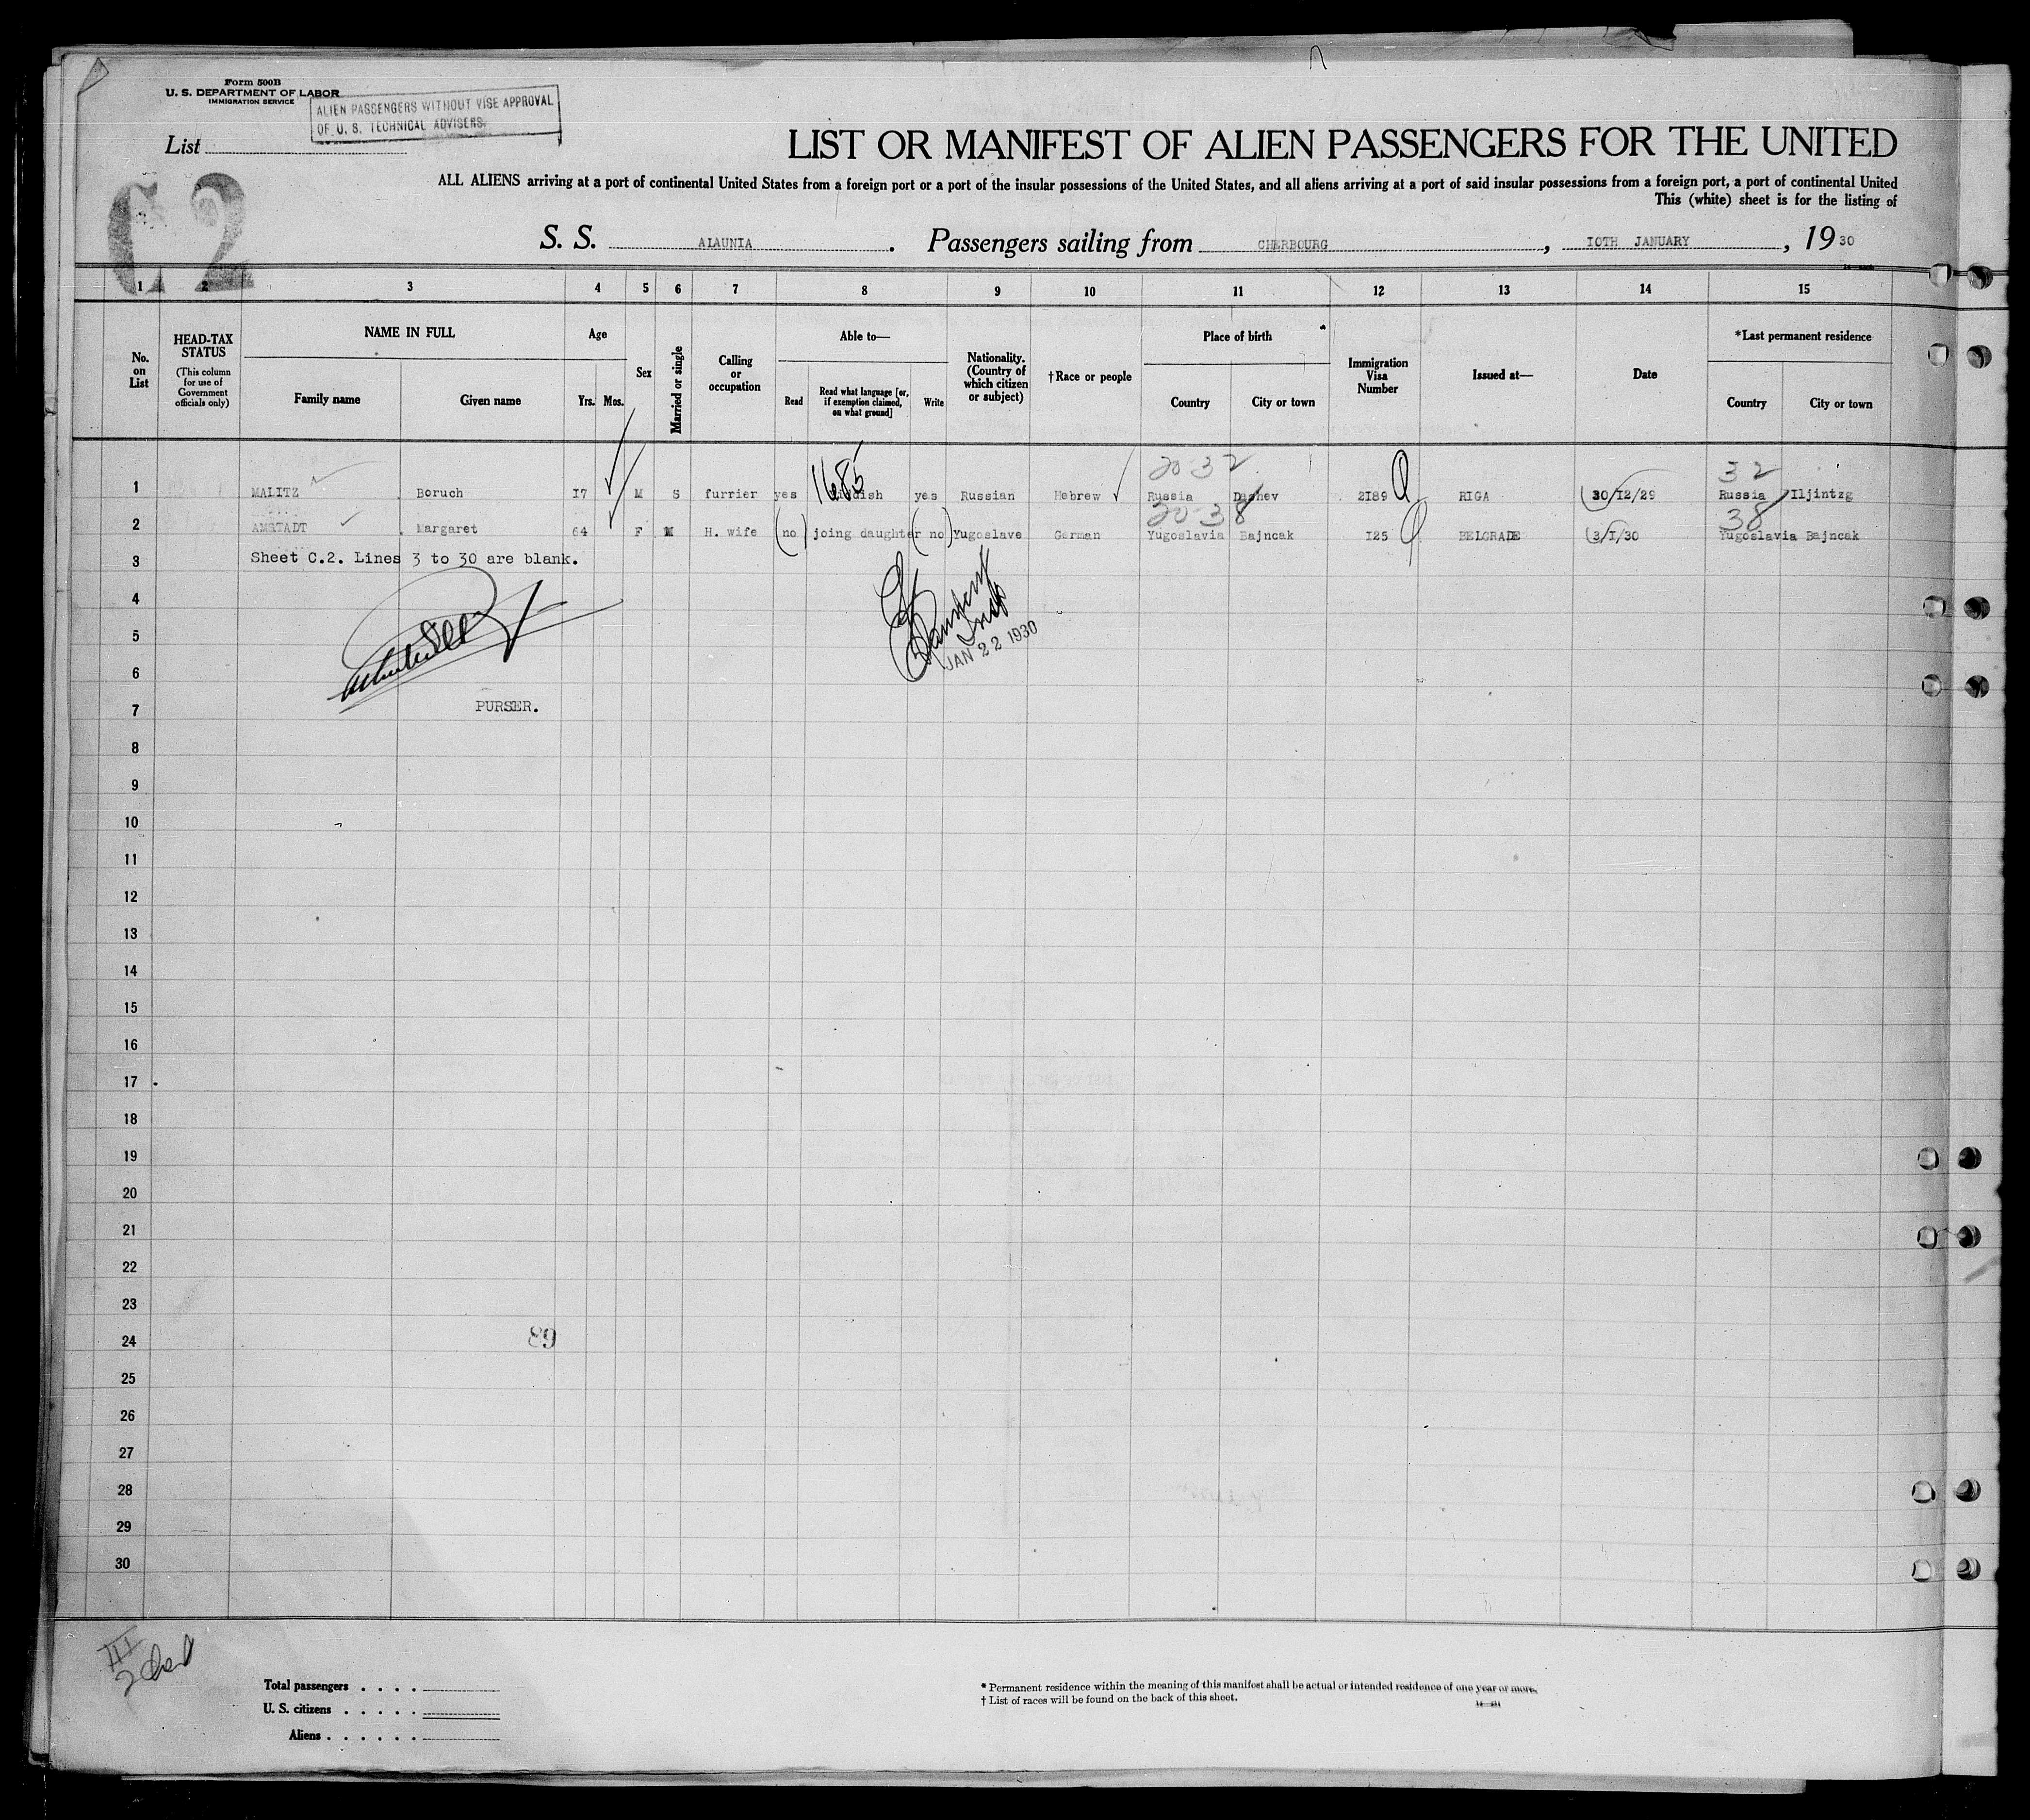 Form 500B
U. S. DEPARTMENT OF LABOR
IMMIGRATION SERVICE
ALIEN PASSENGERS WITHOUT VISE APPROVAL
OF U. S. TECHNICAL ADVISERS.
List
C2
LIST OR MANIFEST OF ALIEN PASSENGERS FOR THE UNITED
ALL ALIENS arriving at a port of continental United States from a foreign port or a port of the insular possessions of the United States, and all aliens arriving at a port of said insular possessions from a foreign port, a port of continental United
This (white) sheet is for the listing of
S. S. ALAUNIA. Passengers sailing from CHERBOURG, IOTH JANUARY, 1930
1 2 3 4 5 6 7 8 9 10 11 12 13 14 15
No. on List
HEAD-TAX STATUS (This column for use of Government officials only)
NAME IN FULL
Family name Given name
Age
Yrs. Mos.
Sex
Married or single
Calling or occupation
Able to—
Read Read what language [or, if exemption claimed, on what ground] Write
Nationality. (Country of which citizen or subject)
†Race or people
Place of birth
Country City or town
Immigration Visa Number
Issued at—
Date
*Last permanent residence
Country City or town
1685 20 32 32
1 MALITZ Boruch I7 M S furrier yes Yiddish yes Russian Hebrew Russia Dashev 2I89 RIGA 30/I2/29 Russia Iljintzg
20 38 38
2 AMSTADT Margaret 64 F M H. wife (no) joing daughter (no) Yugoslave German Yugoslavia Bajncak I25 BELGRADE 3/I/30 Yugoslavia Bajncak
3 Sheet C.2. Lines 3 to 30 are blank.
4
5
JAN 22 1930
6
7 PURSER.
8
9
10
11
12
13
14
15
16
17
18
19
20
21
22
23
24
25
26
27
28
29
30
III
Total passengers . . . .
U. S. citizens . . . . .
Aliens . . . . . .
* Permanent residence within the meaning of this manifest shall be actual or intended residence of one year or more.
† List of races will be found on the back of this sheet.